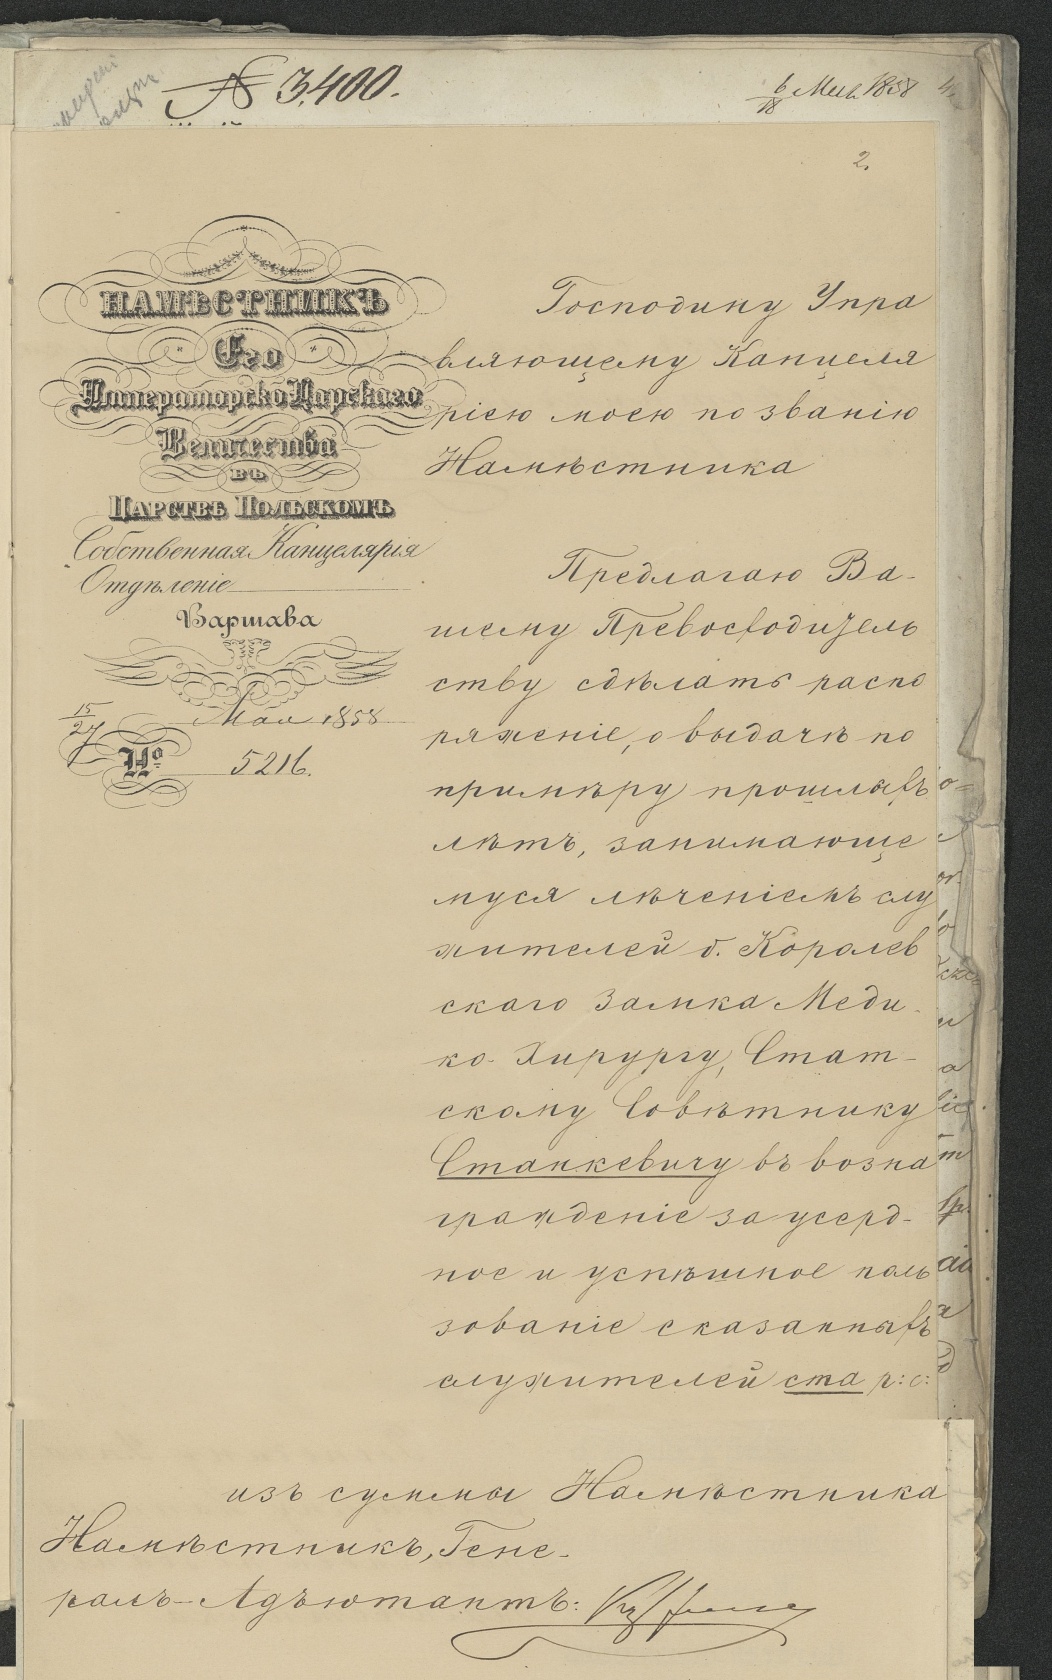 № 3,400.
6/18 Мая 1858
2.
НАМѢСТНИКЪ
Его
Императорско Царскаго
Величества
въ
Царствѣ Польскомъ
Собственная Канцелярія
Отдѣленіе
Варшава
15/27 Мая 1858
№ 5216.
Господину Упра
вляющему Канцеля
ріею моею по званію
Намѣстника
Предлагаю Ва-
шему Превосходитель
ству сдѣлать распо
ряженіе, о выдачѣ по
примѣру прошлыхъ
лѣтъ, занимающе
муся лѣченіемъ слу
жителей б. Королев
скаго Замка Меди-
ко-Хирургу, Стат-
скому Совѣтнику
Станкевичу въ возна
гражденіе за усерд-
ное и успѣшное поль
зованіе сказанныхъ
служителей ста р: с:
изъ суммы Намѣстника
Намѣстникъ, Гене-
ралъ-Адъютантъ: